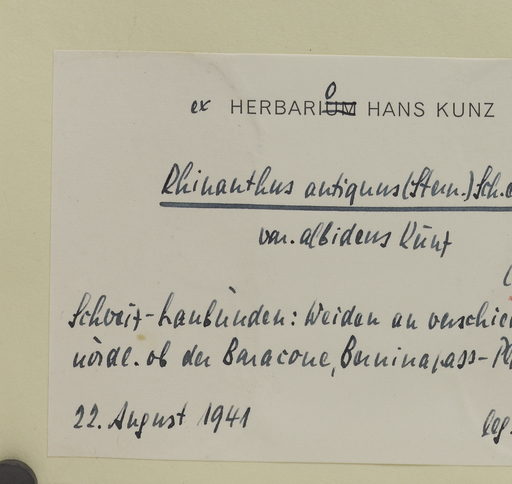 ex HERBARIO HANS KUNZ
Rhinanthus antiquus (Stern.) Sch.
var. albidens Kunz
Schweiz-Graubünden: Weiden an verschie
nördl. ob der Baracone, Berninapass-
22. August 1941 leg.